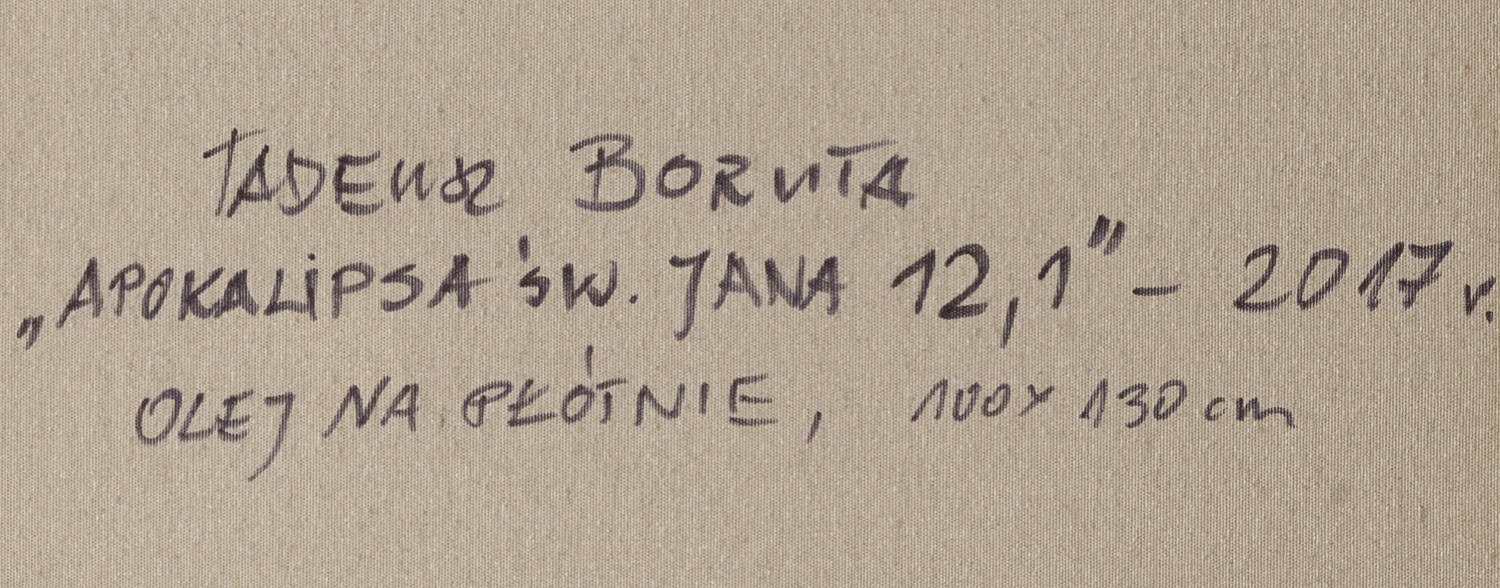 TADEUSZ BORUTA
„APOKALIPSA ŚW. JANA 12,1” – 2017 r.
OLEJ NA PŁÓTNIE, 100 x 130 cm